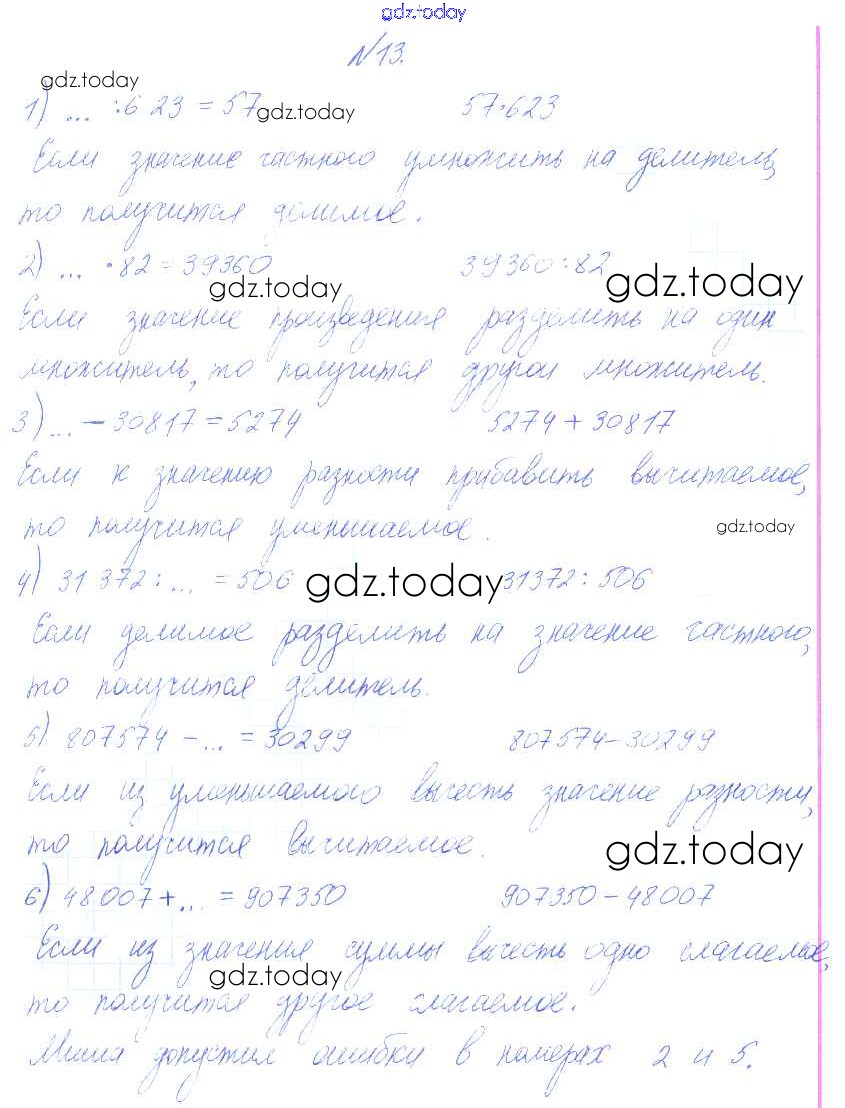 gdz.today
№13.
gdz.today
1) ... :623 = 57 gdz.today 57·623
Если значение частного умножить на делитель,
то получится делимое.
2) ... · 82 = 39360 39360:82
gdz.today gdz.today
Если значение произведения разделить на один
множитель, то получится другой множитель.
3) ... – 30817 = 5274 5274 + 30817
Если к значению разности прибавить вычитаемое,
то получится уменьшаемое.
gdz.today
4) 31 372 : ... = 506 gdz.today 31372 : 506
Если делимое разделить на значение частного,
то получится делитель.
5) 807574 – ... = 30299 807574–30299
Если из уменьшаемого вычесть значение разности,
то получится вычитаемое.
gdz.today
6) 48007 + ... = 907350 907350 – 48007
Если из значения суммы вычесть одно слагаемое,
gdz.today
то получится другое слагаемое.
Миша допустил ошибки в номерах 2 и 5.